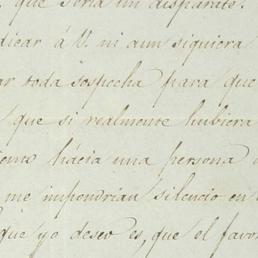 que sería un disparate.
dicar á V. ni aun siquiera
ar toda sospecha para que
que si realmente hubiera
iento hácia una persona
me impondrian silencio en
que yo deseo es, que el favor